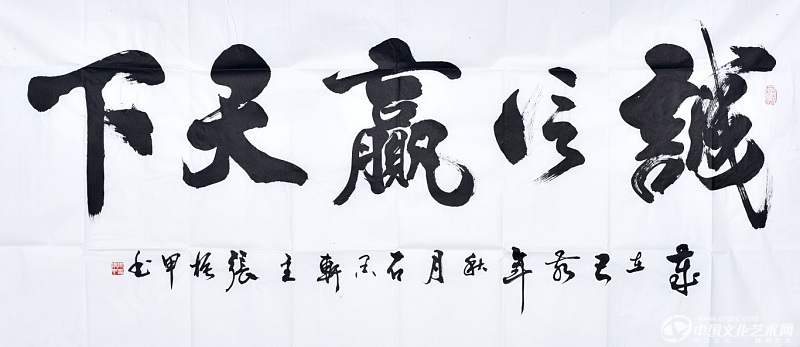 誠信贏天下
歲在己亥年秋月石墨軒主張振甲書
中国文化艺术网